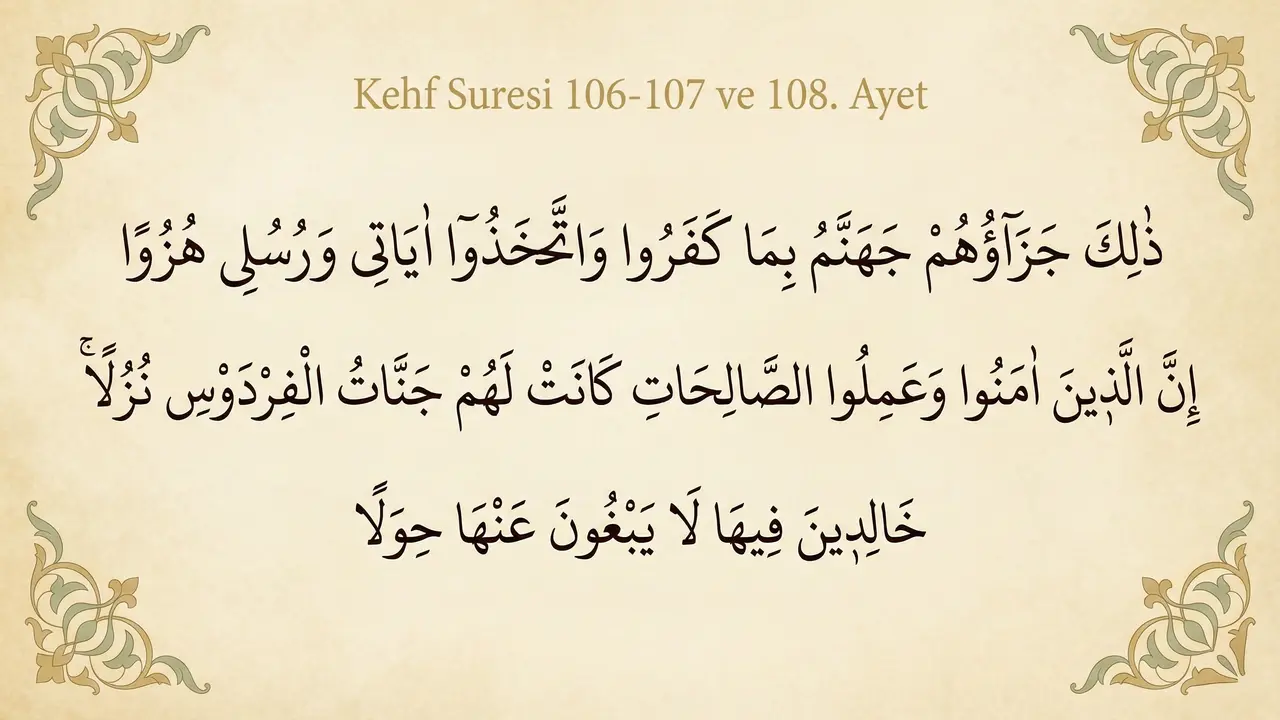 Kehf Suresi 106-107 ve 108. Ayet
ذٰلِكَ جَزَآؤُهُمْ جَهَنَّمُ بِمَا كَفَرُوا وَاتَّخَذُوٓا اٰيَاتِى وَرُسُلِى هُزُوًا
إِنَّ الَّذ۪ينَ اٰمَنُوا وَعَمِلُوا الصَّالِحَاتِ كَانَتْ لَهُمْ جَنَّاتُ الْفِرْدَوْسِ نُزُلًاۚ
خَالِد۪ينَ فِيهَا لَا يَبْغُونَ عَنْهَا حِوَلًا